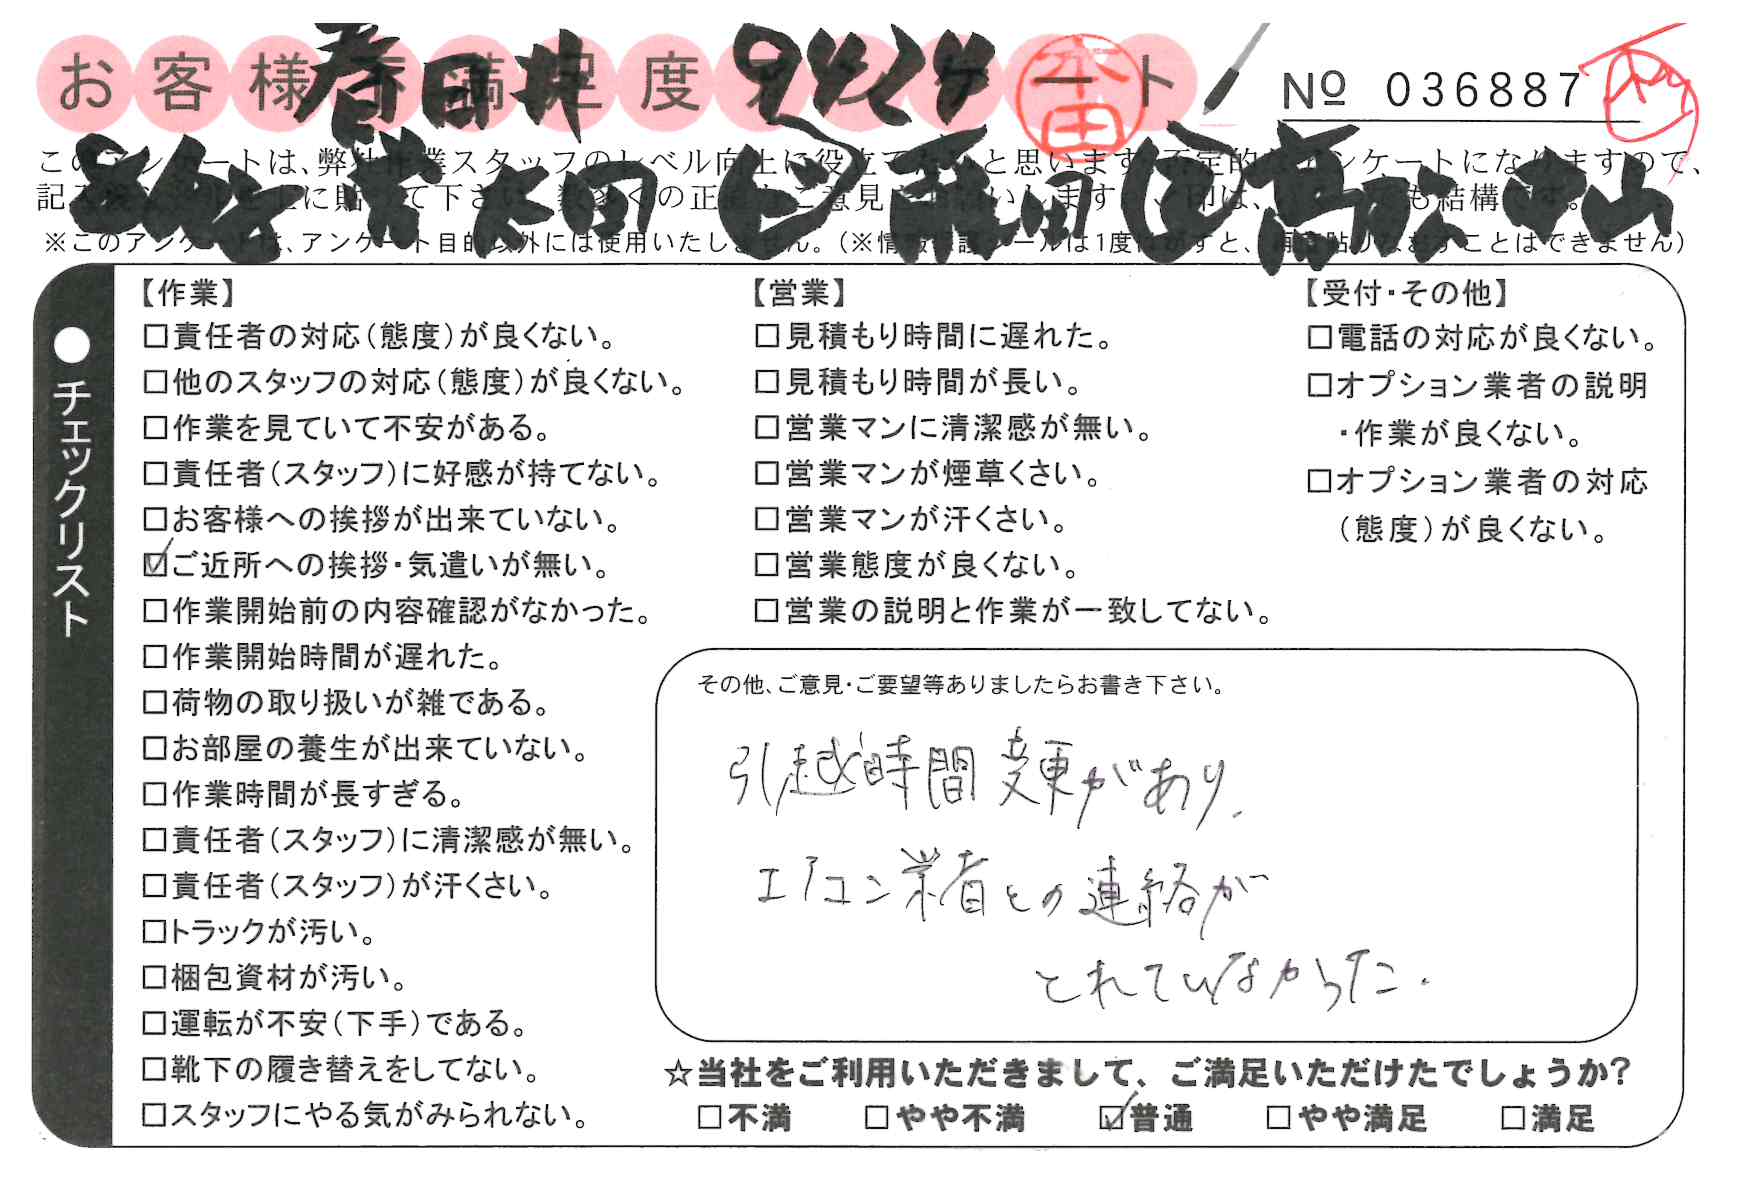 お客様満足度アンケート
春日井 9424 本田
№ 036887
このアンケートは、弊社作業スタッフのレベル向上に役立てたいと思います。不定的なアンケートになりますので、
※このアンケートは、アンケート目的以外には使用いたしません。(※情報保護シールは1度はがすと、再度貼りなおすことはできません)
太田 高松 中山
●チェックリスト
【作業】
□責任者の対応(態度)が良くない。
□他のスタッフの対応(態度)が良くない。
□作業を見ていて不安がある。
□責任者(スタッフ)に好感が持てない。
□お客様への挨拶が出来ていない。
☑ご近所への挨拶・気遣いが無い。
□作業開始前の内容確認がなかった。
□作業開始時間が遅れた。
□荷物の取り扱いが雑である。
□お部屋の養生が出来ていない。
□作業時間が長すぎる。
□責任者(スタッフ)に清潔感が無い。
□責任者(スタッフ)が汗くさい。
□トラックが汚い。
□梱包資材が汚い。
□運転が不安(下手)である。
□靴下の履き替えをしてない。
□スタッフにやる気がみられない。
【営業】
□見積もり時間に遅れた。
□見積もり時間が長い。
□営業マンに清潔感が無い。
□営業マンが煙草くさい。
□営業マンが汗くさい。
□営業態度が良くない。
□営業の説明と作業が一致してない。
【受付・その他】
□電話の対応が良くない。
□オプション業者の説明
・作業が良くない。
□オプション業者の対応
(態度)が良くない。
その他、ご意見・ご要望等ありましたらお書き下さい。
引越時間変更があり、
エアコン業者との連絡が
とれていなかった.
☆当社をご利用いただきまして、ご満足いただけたでしょうか?
□不満 □やや不満 ☑普通 □やや満足 □満足